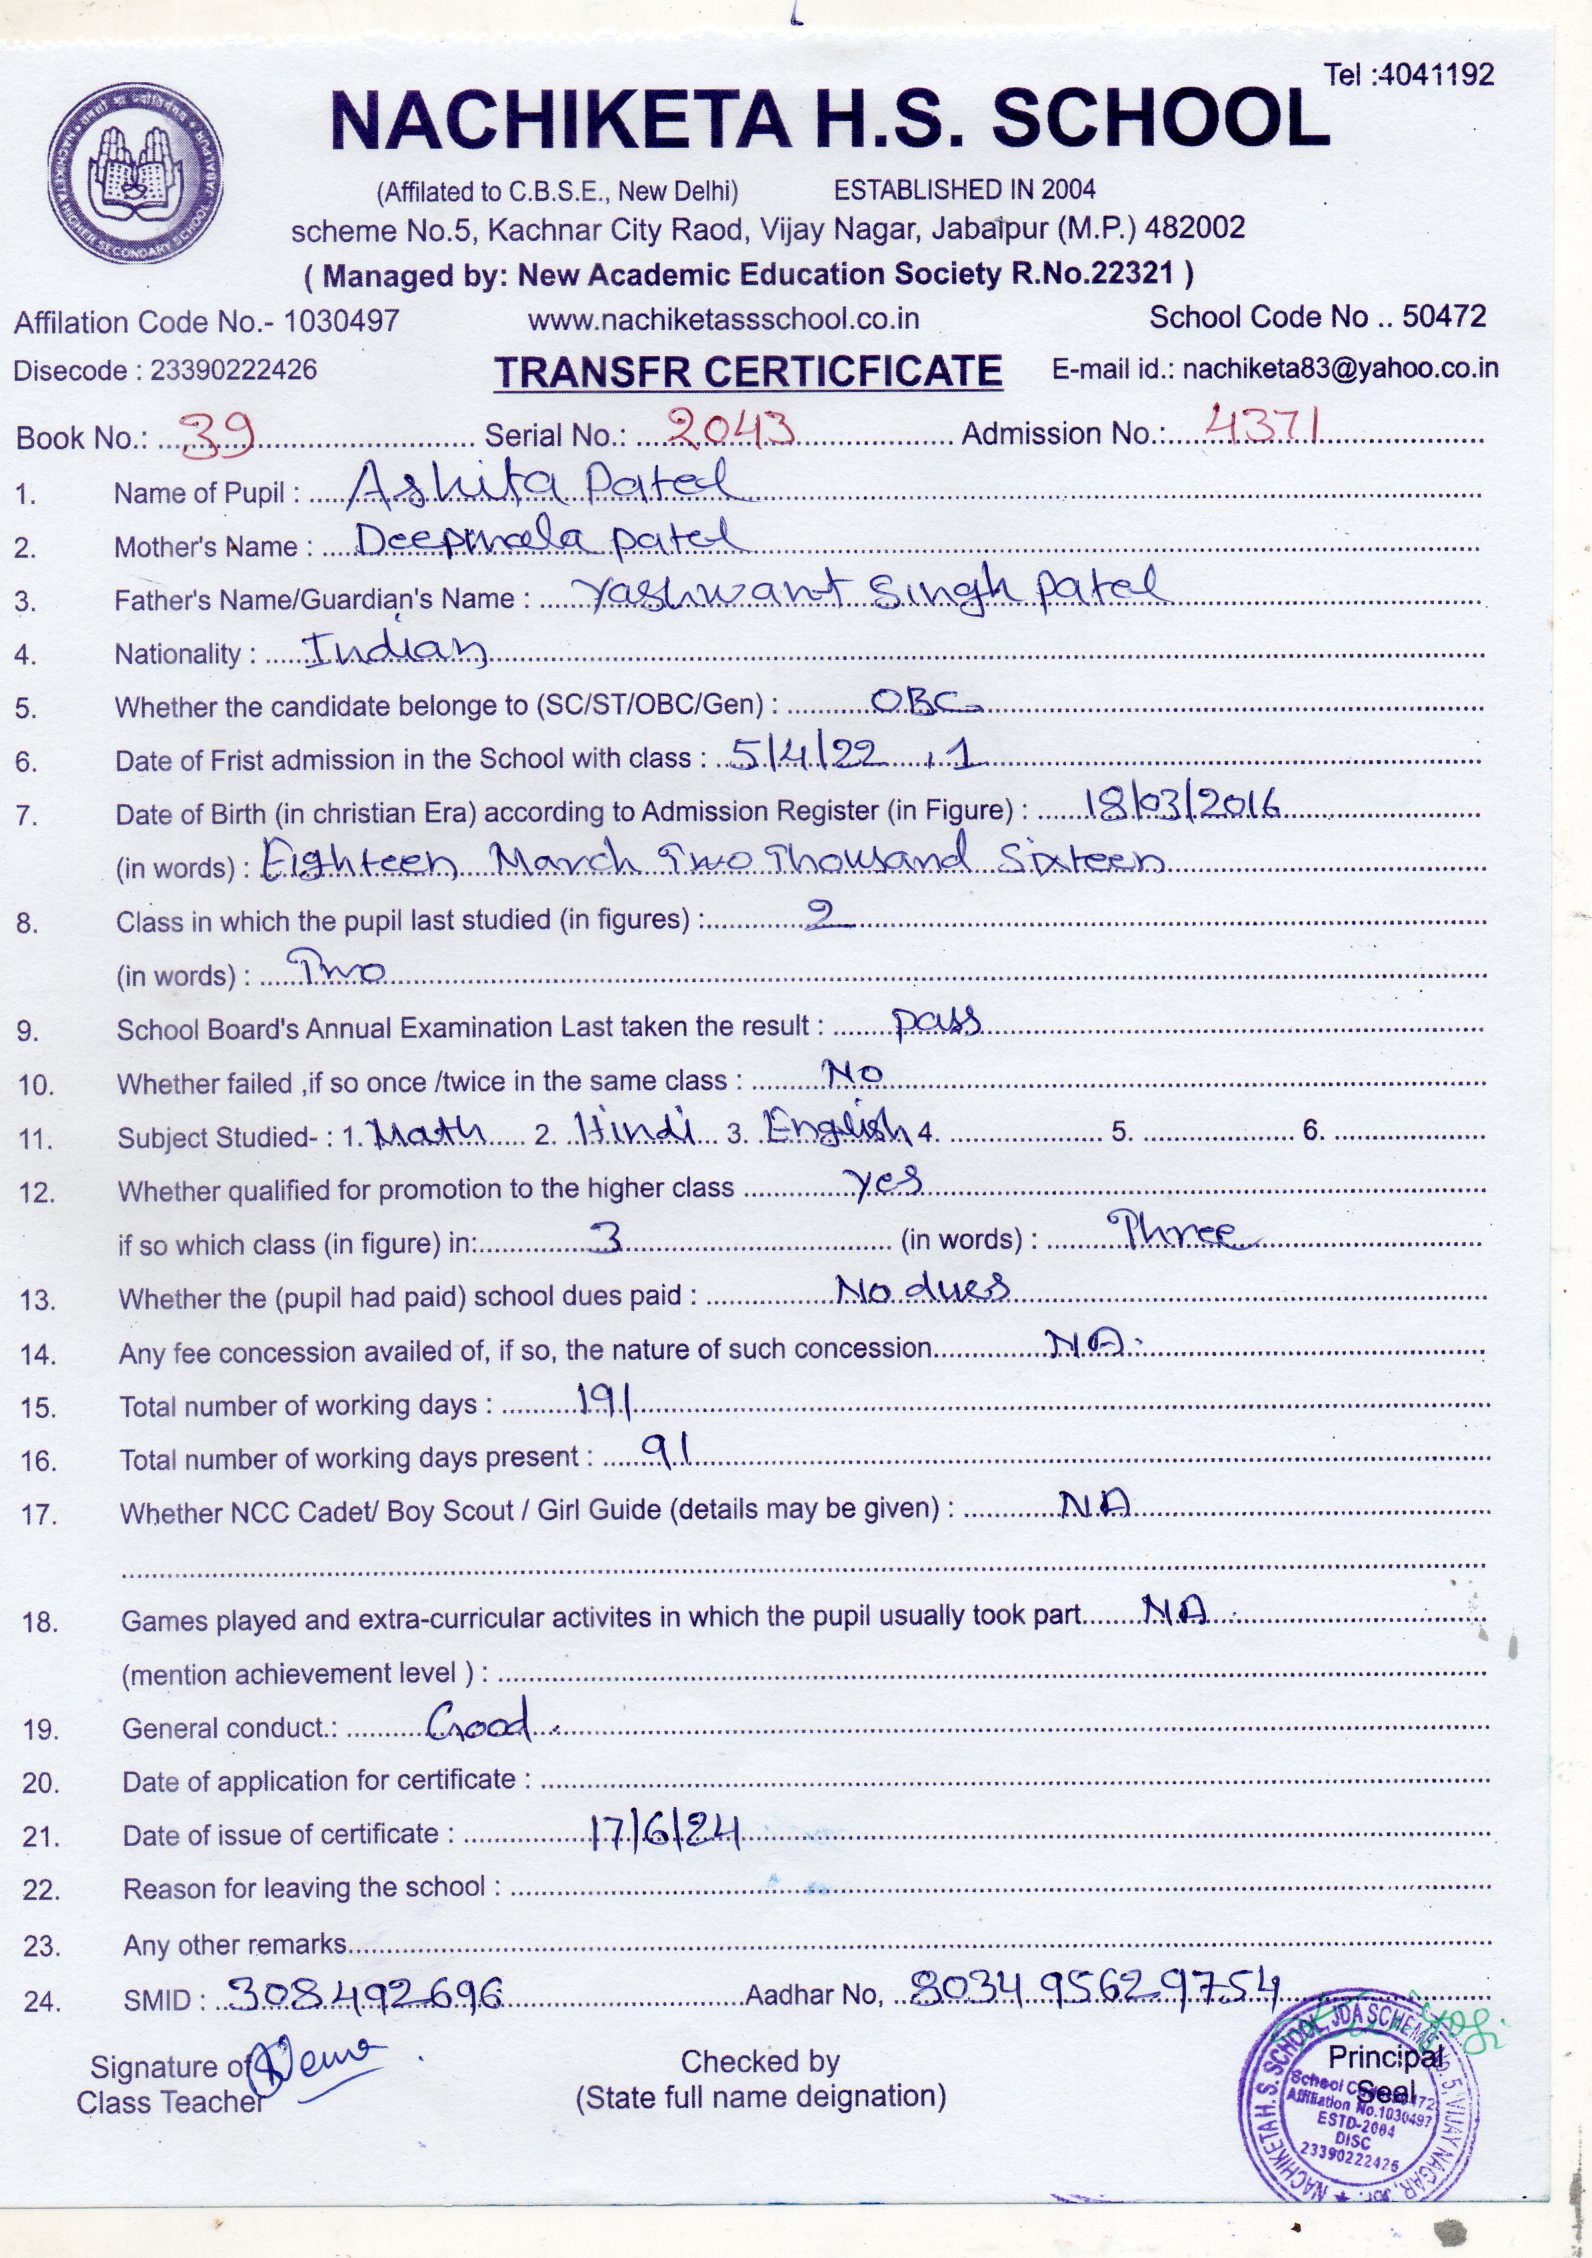 Tel :4041192
NACHIKETA H.S. SCHOOL
(Affilated to C.B.S.E., New Delhi) ESTABLISHED IN 2004
scheme No.5, Kachnar City Raod, Vijay Nagar, Jabalpur (M.P.) 482002
( Managed by: New Academic Education Society R.No.22321 )
Affilation Code No.- 1030497 www.nachiketassschool.co.in School Code No .. 50472
Disecode : 23390222426 TRANSFR CERTICFICATE E-mail id.: nachiketa83@yahoo.co.in
Book No.: 39 Serial No.: 2043 Admission No.: 4371
1. Name of Pupil : Ashita Patel
2. Mother's Name : Deepmala patel
3. Father's Name/Guardian's Name : Yashwant Singh patel
4. Nationality : Indian
5. Whether the candidate belonge to (SC/ST/OBC/Gen) : OBC
6. Date of Frist admission in the School with class : 5/4/22 , 1
7. Date of Birth (in christian Era) according to Admission Register (in Figure) : 18/03/2016
(in words) : Eighteen March Two Thousand Sixteen
8. Class in which the pupil last studied (in figures) : 2
(in words) : Two
9. School Board's Annual Examination Last taken the result : pass
10. Whether failed ,if so once /twice in the same class : No
11. Subject Studied- : 1. Math 2. Hindi 3. English 4. 5. 6.
12. Whether qualified for promotion to the higher class yes
if so which class (in figure) in: 3 (in words) : Three
13. Whether the (pupil had paid) school dues paid : No dues
14. Any fee concession availed of, if so, the nature of such concession NA.
15. Total number of working days : 191
16. Total number of working days present : 91
17. Whether NCC Cadet/ Boy Scout / Girl Guide (details may be given) : NA
18. Games played and extra-curricular activites in which the pupil usually took part NA
(mention achievement level ) :
19. General conduct.: Good.
20. Date of application for certificate :
21. Date of issue of certificate : 17/6/24
22. Reason for leaving the school :
23. Any other remarks
24. SMID : 308492696 Aadhar No, 8034 95629754
Signature of Checked by Principal
Class Teacher (State full name deignation) Seal
NACHIKETA H. S. SCHOOL, JDA SCHEME 5, VIJAY NAGAR,
Affiliation No.1030497
ESTD-2004
DISC
23390222426